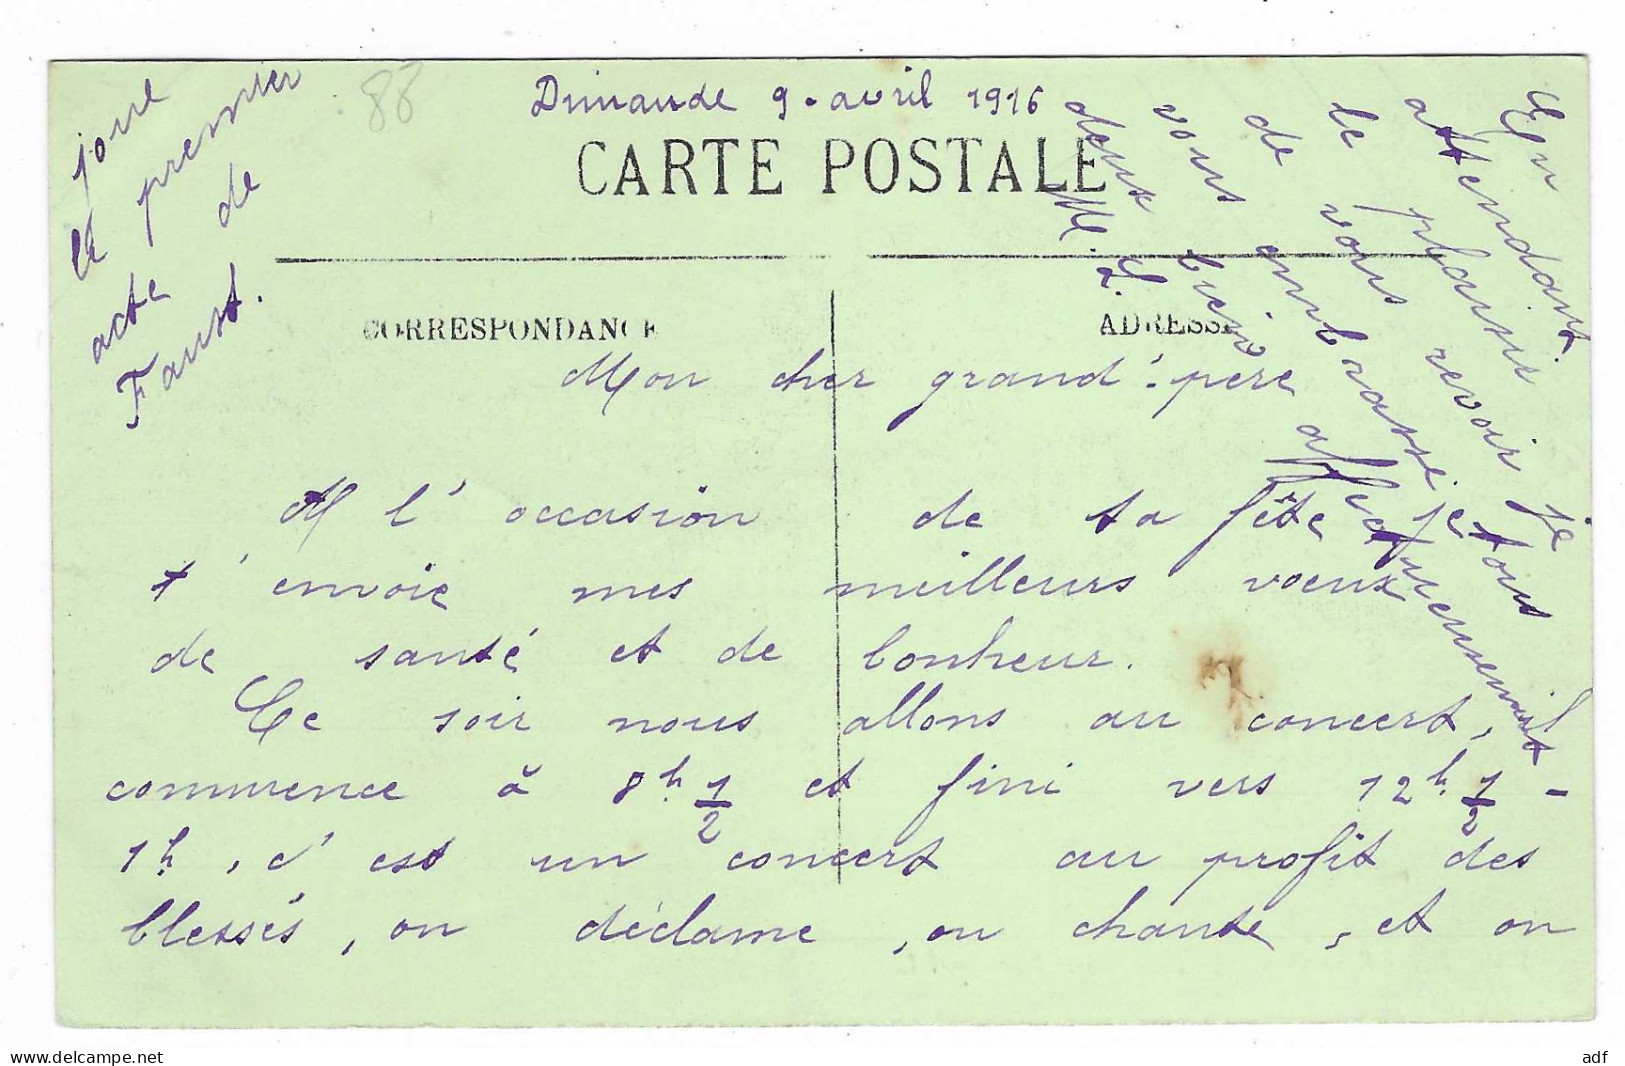 Dimande 9. avril 1916
88
CARTE POSTALE
CORRESPONDANCE
ADRESSE
Mon cher grand'-père
A l'occasion de ta fête je
t'envoie mes meilleurs voeux
de santé et de bonheur.
Ce soir nous allons au concert,
commence à 8h. 1/2 et fini vers 12h. 1/2 -
1h, c'est un concert au profit des
blessés, on déclame, on chante, et on
joue
le premier
acte de
Faust.
En attendant
le plaisir
de vous revoir je
vous embrasse tous
deux bien affectueusement
M. L.
www.delcampe.net
adf